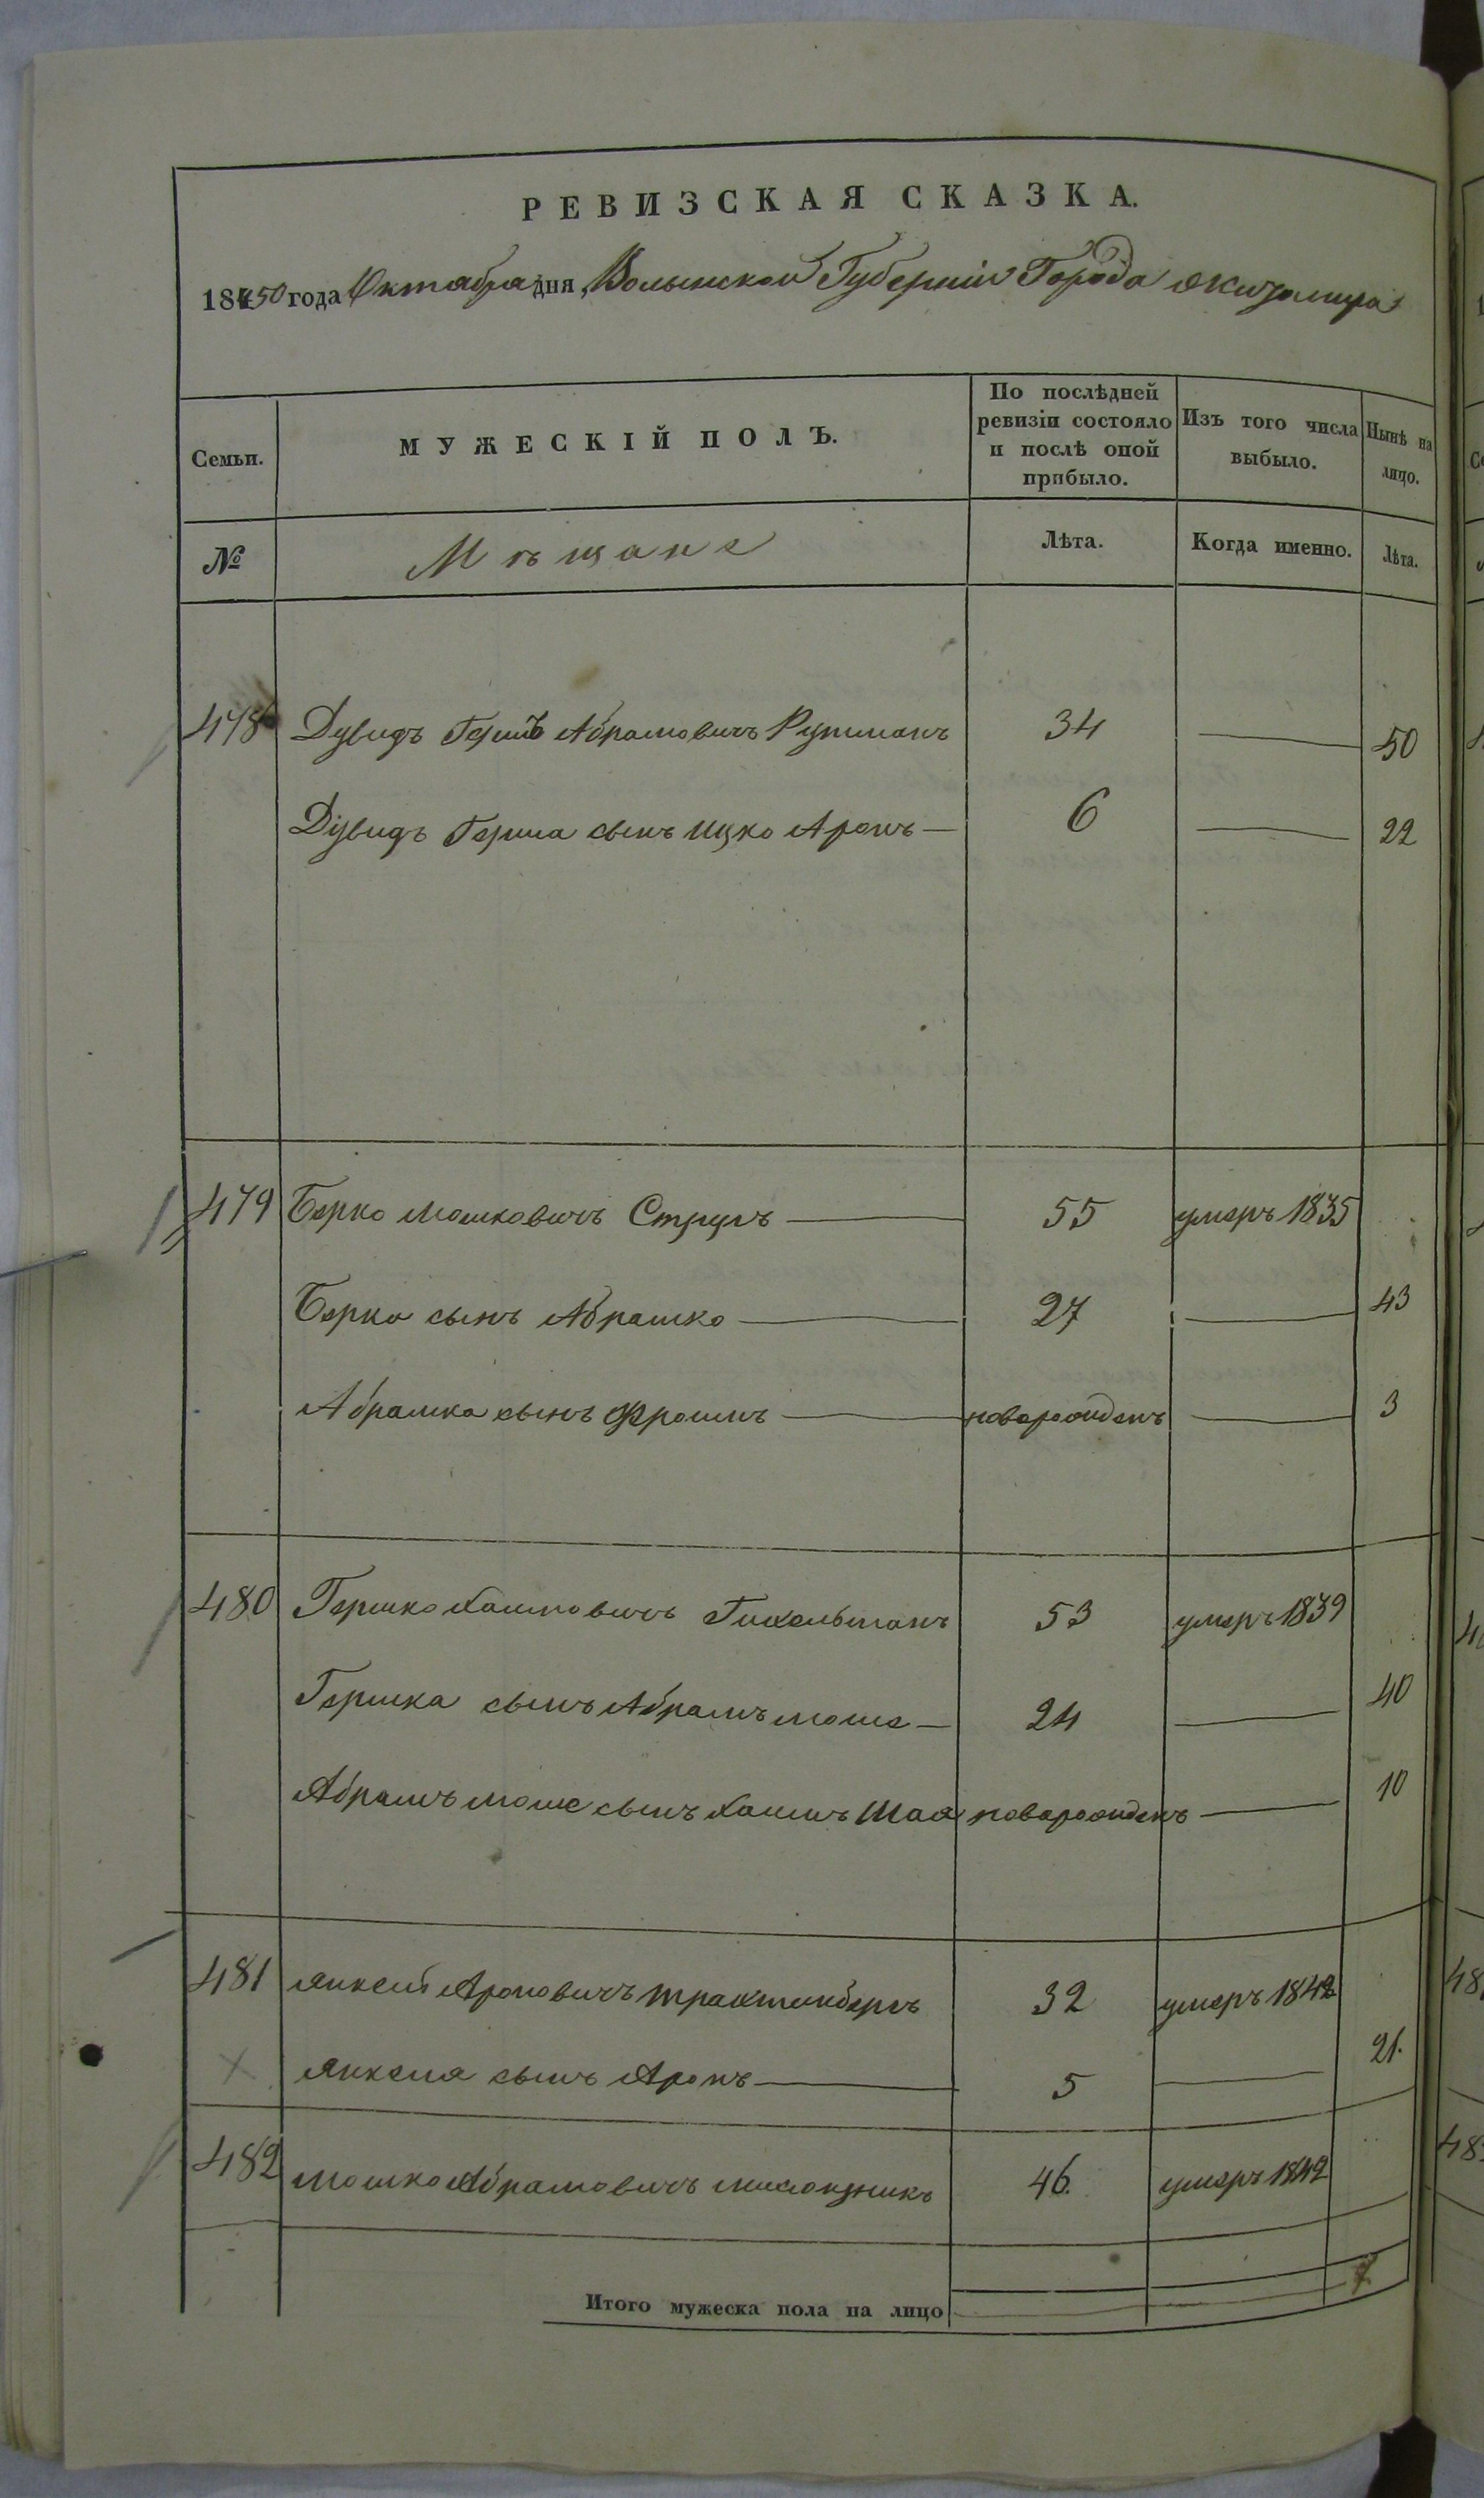 РЕВИЗСКАЯ СКАЗКА.
1850 года Октября дня, Волынской Губернии Города Житомира
Семьи. МУЖЕСКІЙ ПОЛЪ. По послѣдней ревизіи состояло и послѣ оной прибыло. Изъ того числа выбыло. Нынѣ на лицо.
№ Мѣщане Лѣта. Когда именно. Лѣта.
478 Дувидъ Гершъ Абрамовичъ Рутманъ 34 — 50
Дувидъ Герша сынъ Ицко Аронъ — 6 — 22
479 Берко Мошковичъ Струлъ — 55 умеръ 1835
Берко сынъ Абрашко — 27 — 43
Абрашка сынъ Фроимъ — новорожденъ — 3
480 Гершко Хаимовичъ Гихельманъ 53 умеръ 1839
Гершка сынъ Абрамъ Моше — 24 — 40
Абрамъ Моше сынъ Хаимъ Шая новорожденъ — 10
481 Янкель Ароновичъ Трахтинбергъ 32 умеръ 1842
Янкеля сынъ Аронъ — 5 — 21.
482 Мошко Абрамовичъ 46. умеръ 1842
Итого мужеска пола на лицо 7